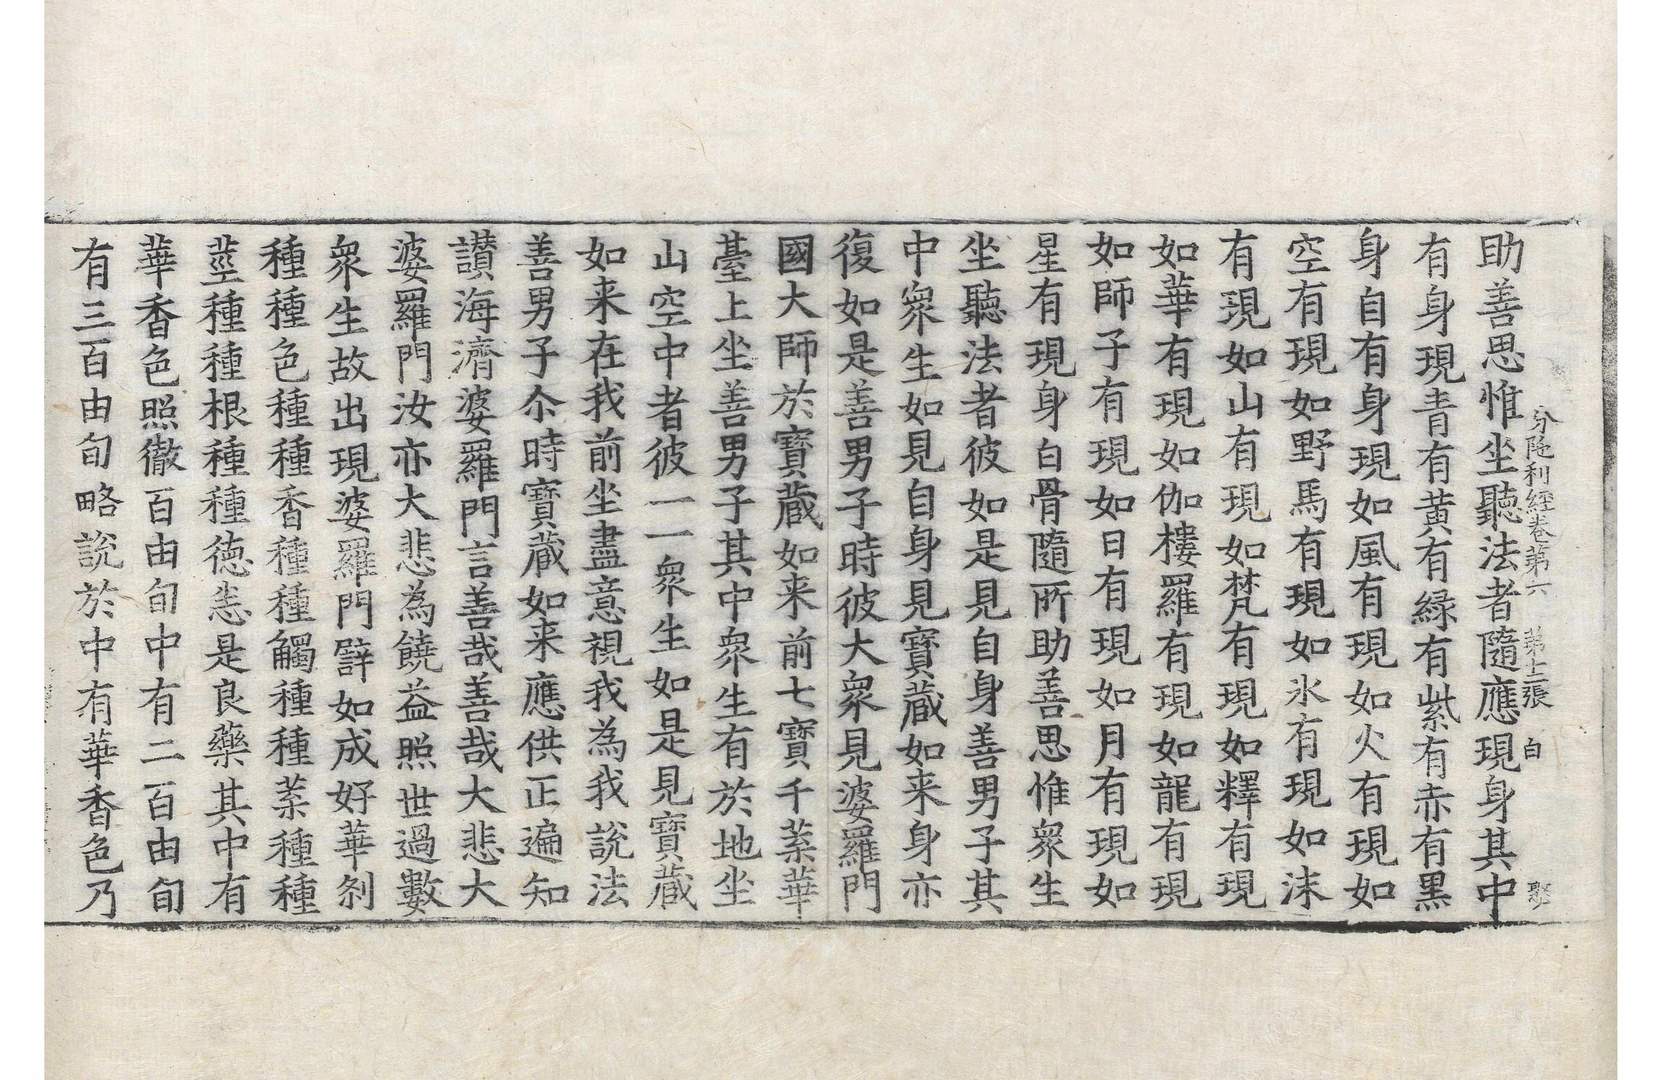 分陁利經卷第六　第七張　白
助善思惟坐聽法者隨應現身其中
有身現青有黃有緑有紫有赤有黒
身自有身現如風有現如火有現如
空有現如野馬有現如氷有現如沫
有現如山有現如梵有現如釋有現
如華有現如伽樓羅有現如龍有現
如師子有現如日有現如月有現如
星有現身白骨隨所助善思惟衆生
坐聽法者彼如是見自身善男子其
中衆生如見自身見寶藏如来身亦
復如是善男子時彼大衆見婆羅門
國大師於寶藏如来前七寶千葉華
臺上坐善男子其中衆生有於地坐
山空中者彼一一衆生如是見寶藏
如来在我前坐盡意視我為我説法
善男子尒時寶藏如来應供正遍知
讃海濟婆羅門言善哉善哉大悲大
婆羅門汝亦大悲為饒益照世過數
衆生故出現婆羅門譬如成好華刹
種種色種種香種種觸種種葉種種
莖種種根種種徳悉是良藥其中有
華香色照徹百由旬中有二百由旬
有三百由旬略説於中有華香色乃